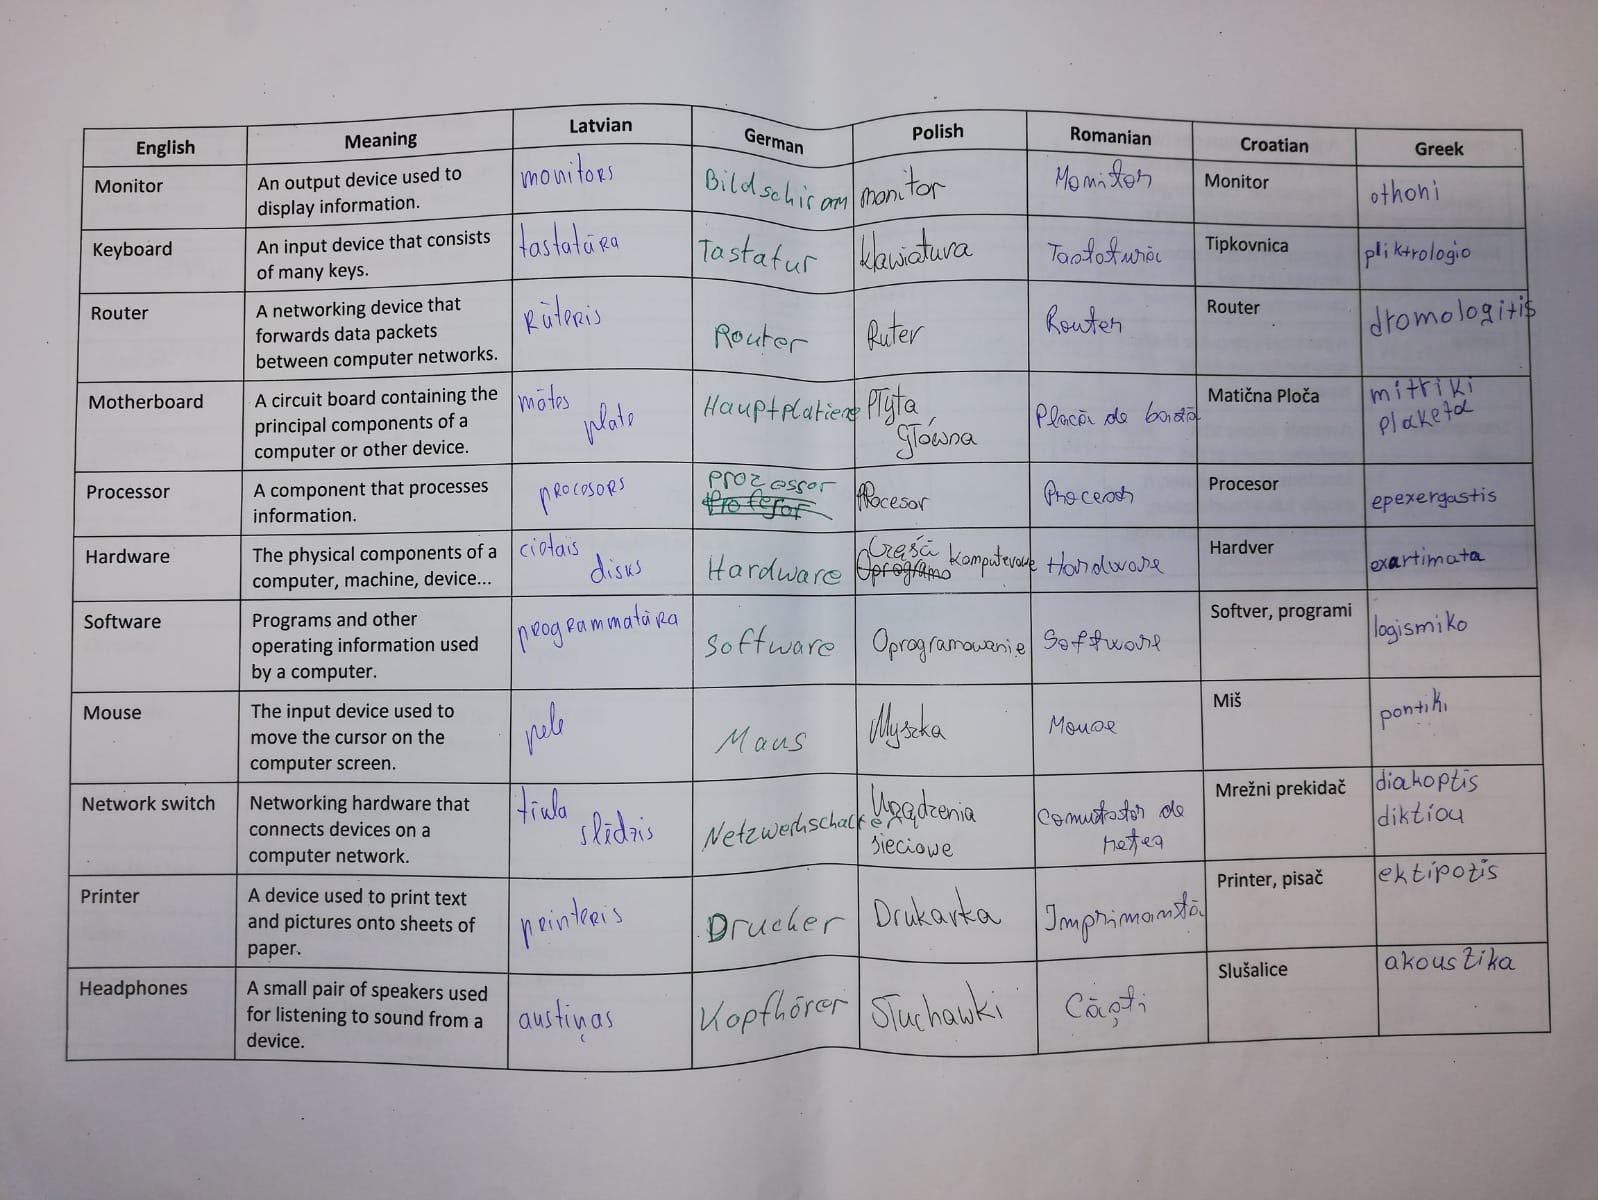 English Meaning Latvian German Polish Romanian Croatian Greek
Monitor An output device used to display information. monitors Bildschirm monitor Monitor Monitor othoni
Keyboard An input device that consists of many keys. tastatūra Tastatur klawiatura Tastatură Tipkovnica pliktrologio
Router A networking device that forwards data packets between computer networks. Rūteris Router Ruter Router Router dromologitis
Motherboard A circuit board containing the principal components of a computer or other device. mātes plate Hauptplatiene Płyta Główna Placă de bază Matična Ploča mitriki plaketa
Processor A component that processes information. procesors Prozessor Procesor Procesor Procesor epexergastis
Hardware The physical components of a computer, machine, device... cietais disks Hardware Częśći komputerowe Hardware Hardver exartimata
Software Programs and other operating information used by a computer. programmatūra Software Oprogramowanie Software Softver, programi logismiko
Mouse The input device used to move the cursor on the computer screen. pele Maus Myszka Mouse Miš pontiki
Network switch Networking hardware that connects devices on a computer network. tīkla slēdzis Netzwerkschalter Urządzenia sieciowe Comutator de rețea Mrežni prekidač diakoptis diktiou
Printer A device used to print text and pictures onto sheets of paper. printeris Drucker Drukarka Imprimantă Printer, pisač ektipotis
Headphones A small pair of speakers used for listening to sound from a device. austiņas Kopfhörer Słuchawki Căști Slušalice akoustika